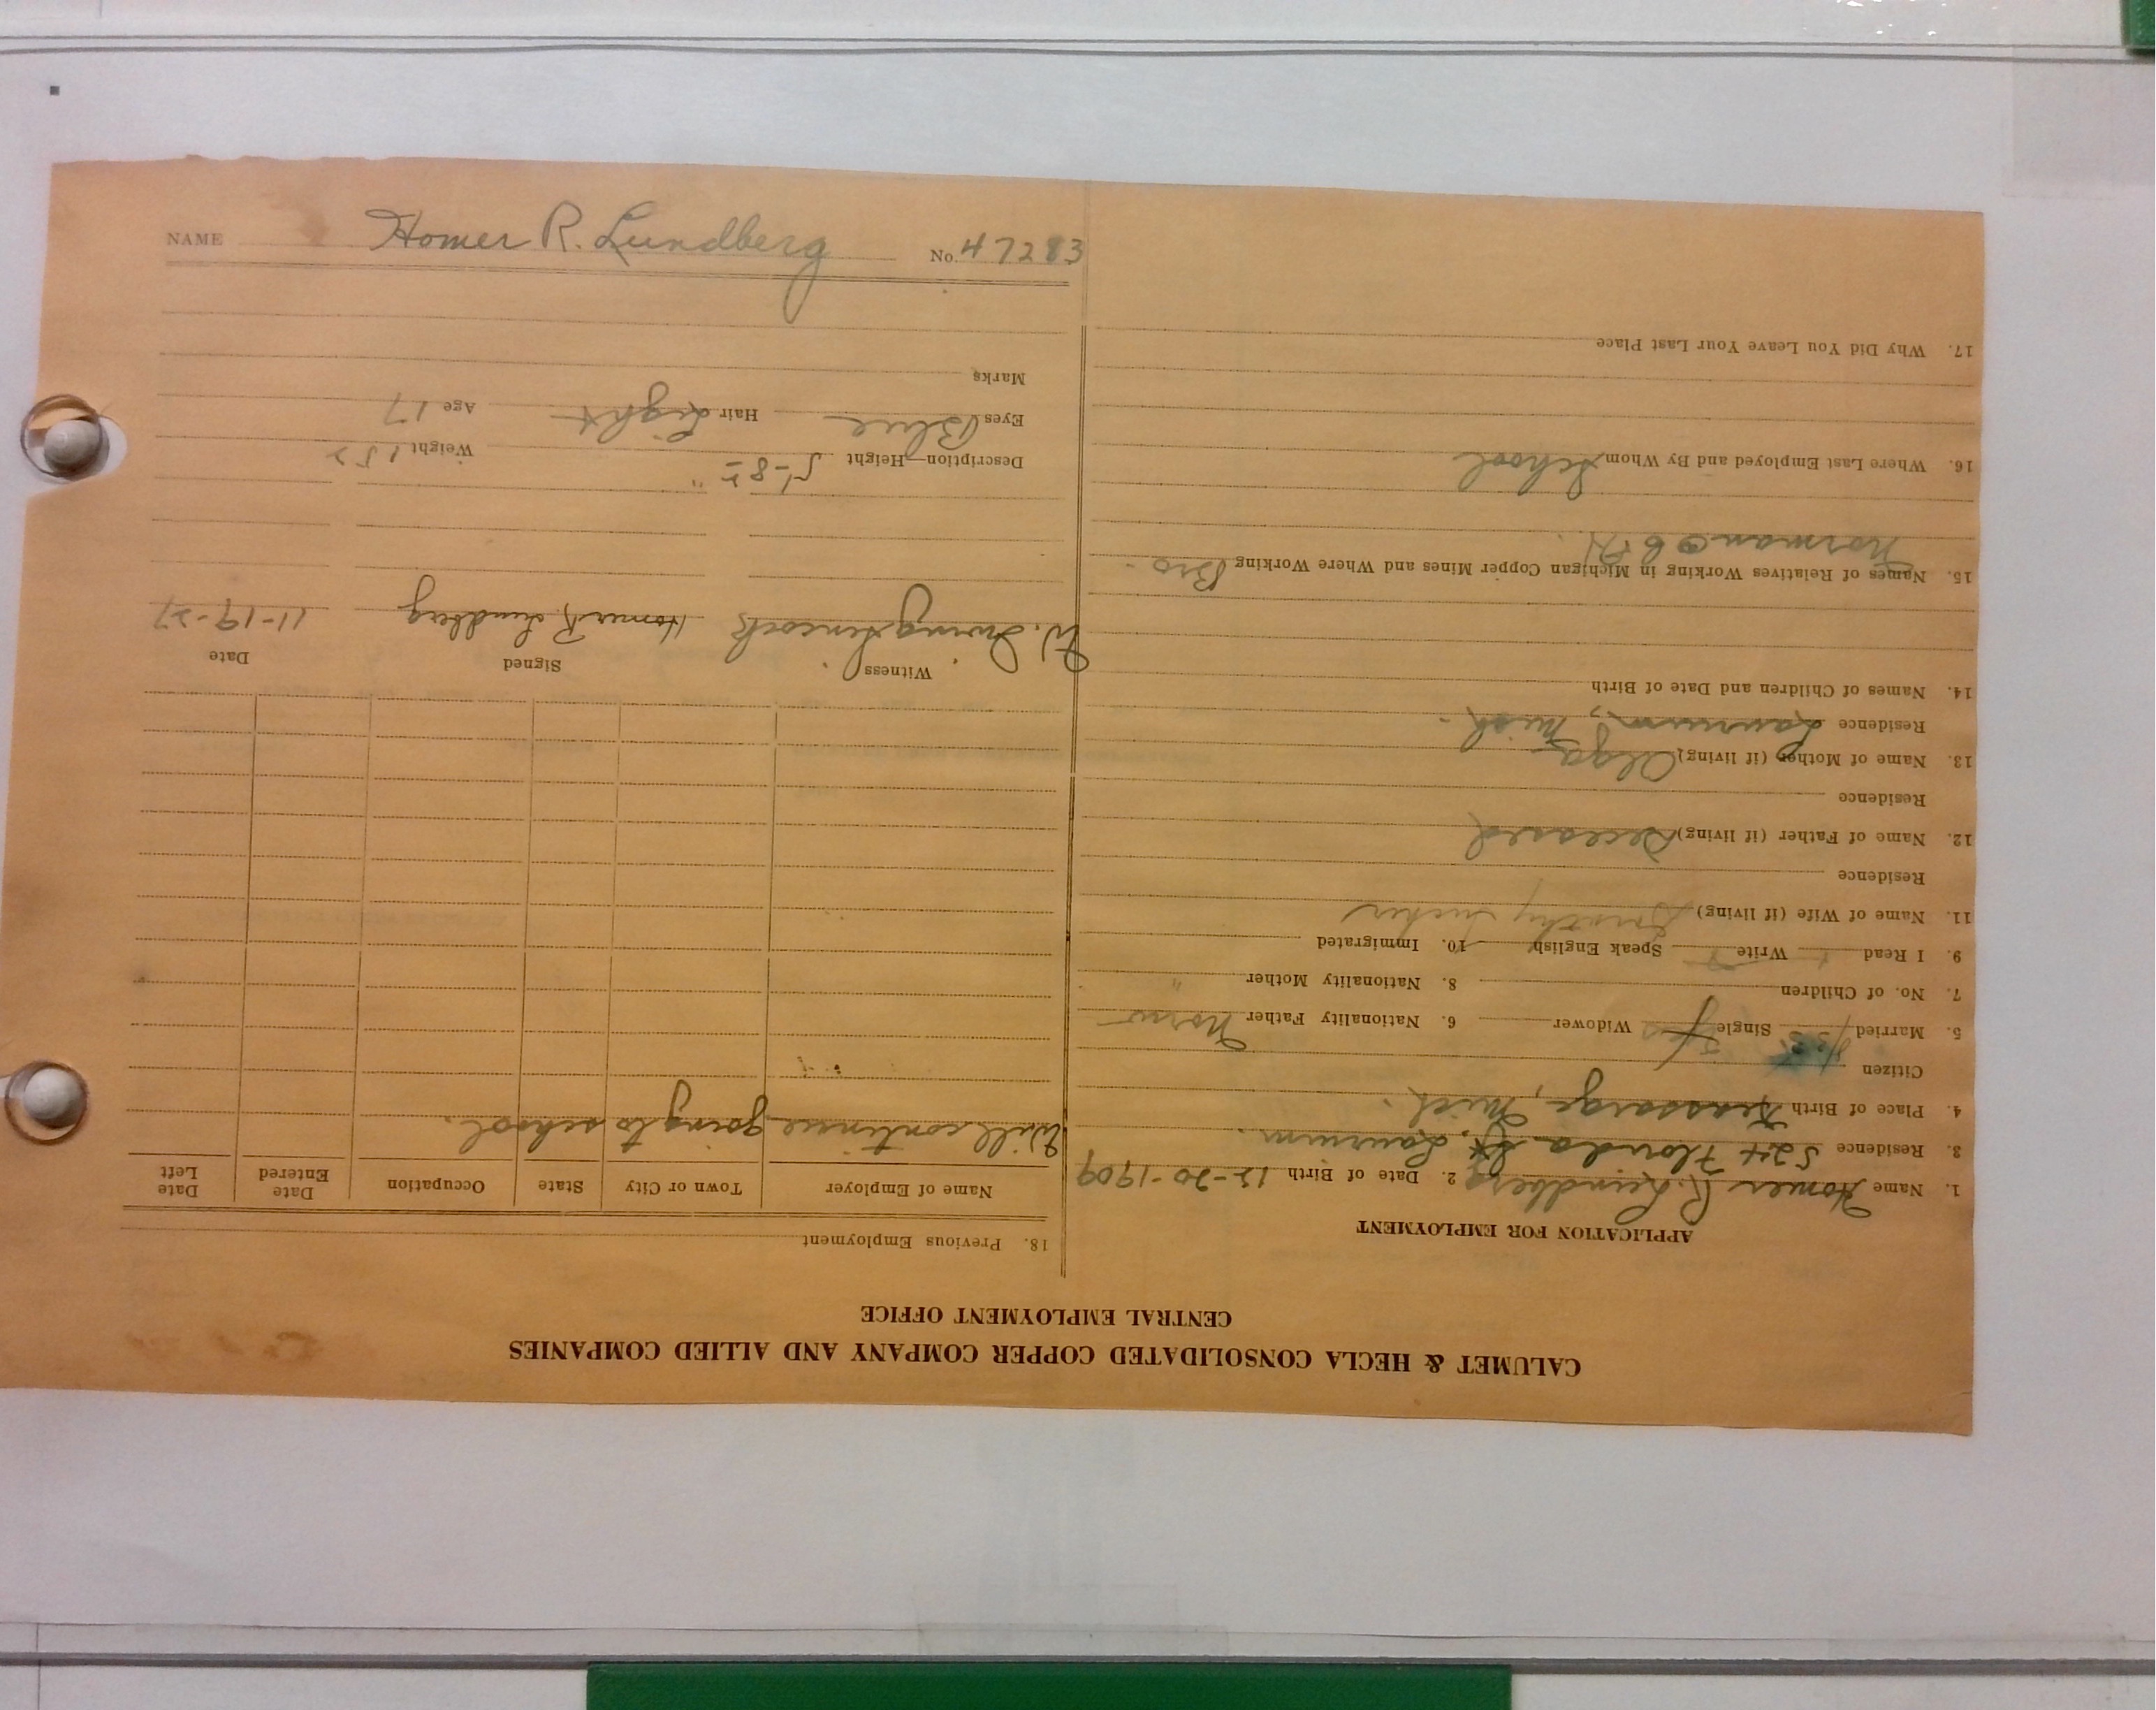 NAME Homer R. Lundberg No. 47283
CALUMET & HECLA CONSOLIDATED COPPER COMPANY AND ALLIED COMPANIES
CENTRAL EMPLOYMENT OFFICE
APPLICATION FOR EMPLOYMENT
1. Name Homer R. Lundberg 2. Date of Birth 12-20-1909
3. Residence 524 Florida St, Laurium.
4. Place of Birth Kearsarge, Mich.
Citizen
5. Married Single Widower 6. Nationality Father Norw
7. No. of Children 8. Nationality Mother "
9. I Read Write Speak English 10. Immigrated
11. Name of Wife (if living) Dorothy Tucker
Residence
12. Name of Father (if living) Deceased
Residence
13. Name of Mother (if living) Olga
Residence Laurium, Mich.
14. Names of Children and Date of Birth
15. Names of Relatives Working in Michigan Copper Mines and Where Working Bro.
Norman
16. Where Last Employed and By Whom School
17. Why Did You Leave Your Last Place
18. Previous Employment
Name of Employer Town or City State Occupation Date Entered Date Left
Will continue going to school.
Witness Signed Date
W. Irving Homer R. Lundberg 11-19-27
Description—Height 5'-8 Weight 152
Eyes Blue Hair Light Age 17
Marks